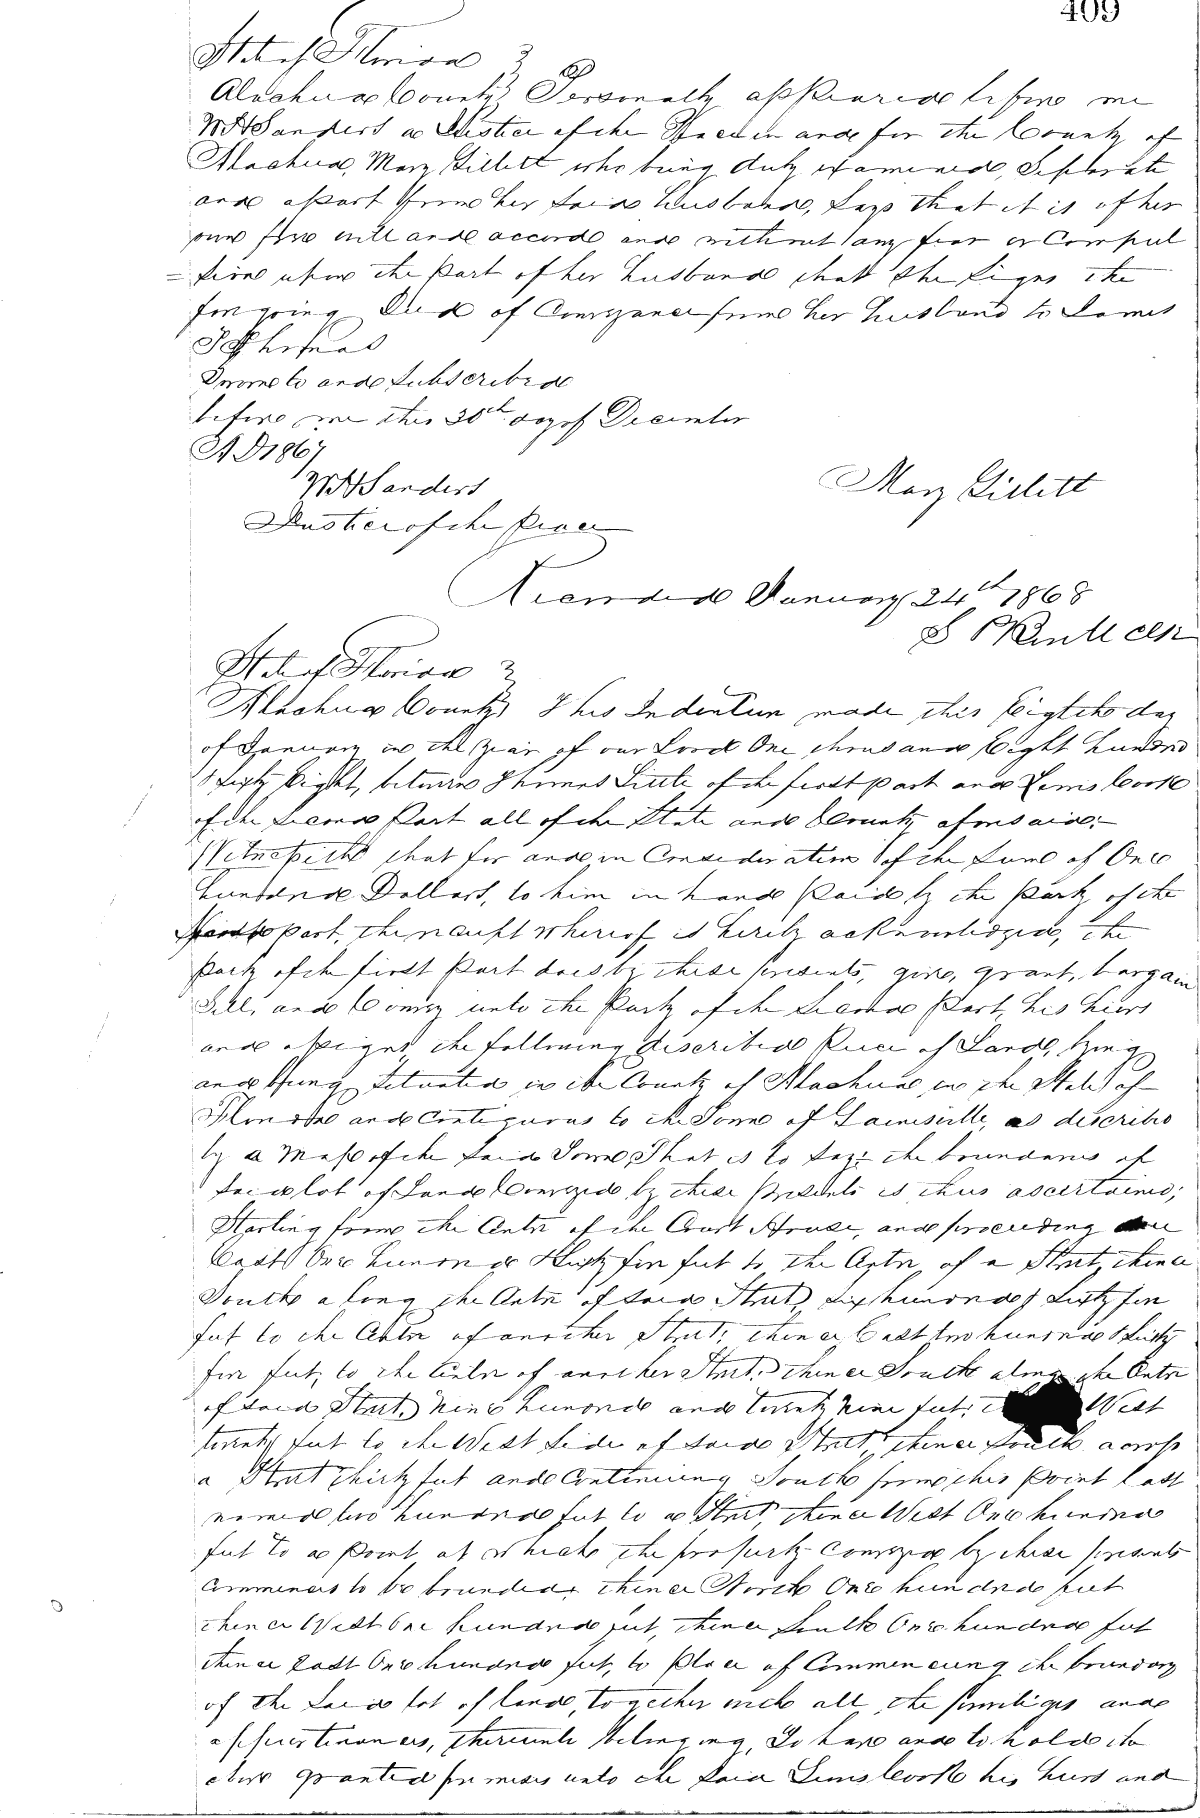 409
State of Florida
Alachua County Personally appeared before me
W H Sanders a Justice of the Peace in and for the County of
Alachua, Mary Gillett who being duly examined, Seperate
and apart from her said husband, Says that it is of her
own free will and accord and without any fear or Compul
= sion upon the Part of her husband that She Signs the
foregoing Deed of Conveyance from her husband to James
Sworn to and Subscribed
before me this 30th day of December
A D 1867
W H Sanders
Justice of the Peace
Mary Gillett
Recorded January 24th 1868
State of Florida
Alachua County This Indenture made this Eigtth day
of January in the year of our Lord One thousand Eight hundred
& Sixty Eight, between Thomas Little of the first part and Lewis Cook
of the Second Part all of the State and County aforesaid:
Witnesseth that for and in Consideration of the Sum of One
hundred Dollars, to him in hand Paid by the Party of the
part, the receipt whereof is hereby acknowledged, the
Party of the first Part does by these presents, give, grant, bargain
Sell, and Convey unto the Party of the Second Part, his heirs
and assigns the following described Piece of Land, lying
and being Situated in the County of Alachua, in the State of
Florida and Contiguous to the Town of Gainesville, as described
by a Map of the Said Town, That is to Say: the boundaries of
Said lot of Land Conveyed by these presents is thus ascertained;
Starting from the Centre of the Court House, and proceeding due
East One hundred & Sixty five feet to the Centre of a Street, thence
South along the Centre of Said Street, Six hundred & Sixty five
feet to the Centre of another Street; thence East two hundred & Sixty
five feet, to the Centre of another Street, thence South along the Centre
of Said Street, Nine hundred and twenty Nine feet; West
twenty feet to the West Side of Said Street, thence South across
a Street thirty feet and Continuing South from this Point last
named two hundred feet to a Street, thence West One hundred
feet to a Point, at which the property Conveyed by these presents
Commences to be bounded, thence North One hundred feet
thence West One hundred feet, thence South One hundred feet
thence East One hundred feet, to Place of Commencing the boundary
of the Said lot of land, together with all the priviliges and
appurtenances, thereunto belonging, To have and to hold the
above granted premises unto the Said Lewis Cook his heirs and